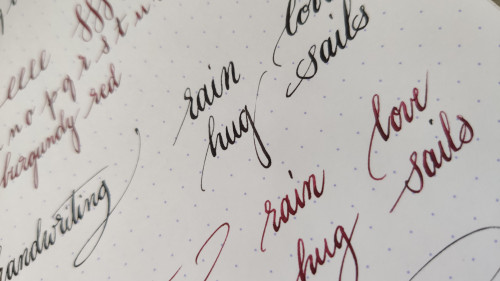 eeee
n o p q r s t u
burgundy red
handwriting
rain love
hug sails
rain love
hug sails